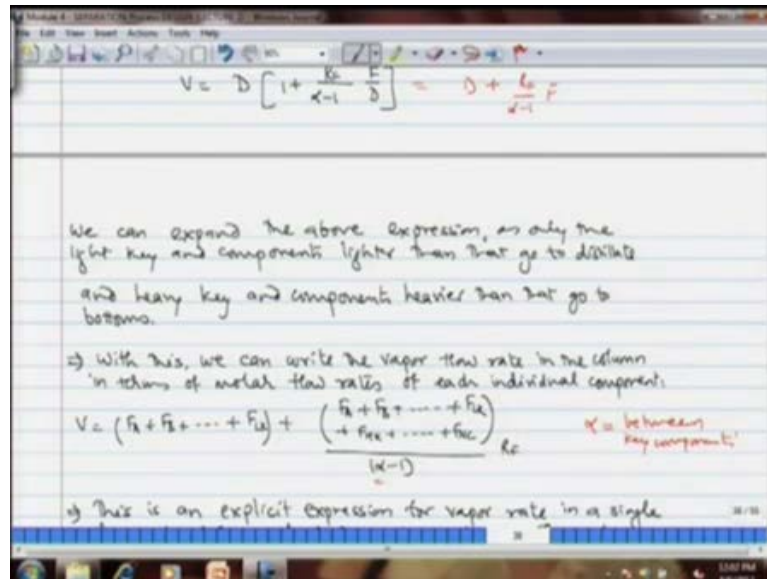 Module 4 - SEPARATION Process DESIGN LECTURE 2 - Windows Journal
File Edit View Insert Actions Tools Help
V = D [1 + RF/α-1 F/D] = D + RF/α-1 F
We can expand the above expression, as only the
light key and components lighter than that go to distillate
and heavy key and components heavier than that go to
bottoms.
⇒ With this, we can write the vapor flow rate in the column
in terms of molar flow rates of each individual component.
V = (FA + FB + ---- + FLK) + (FA + FB + ---- + FLK + FHK + ---- + FNC)/(α-1) RF
α = between key components
⇒ This is an explicit expression for vapor rate in a single